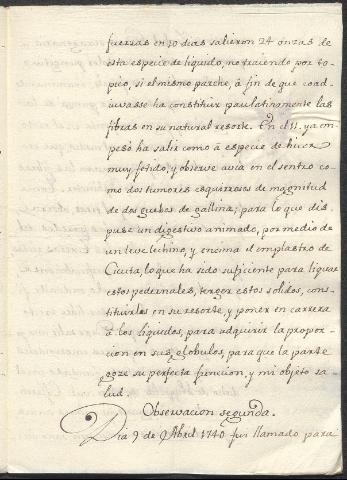 fuerzas en 10 dias salieron 24 onzas de
esta especie de liquido, no traciendo por to-
pico, si el mismo parche, à fin de que coad-
iuvasse ha constituir paulatinamente las
fibras en su natural resorte. En el 11. ya em-
pesò ha salir como à especie de hicor
muy fetido, y observe avia en el sentro co-
mo dos tumores esquirrosos de magnitud
de dos guebos de gallina; para lo que dis-
puse un digestivo animado, por medio de
un leve lechino, y encima el emplastro de
Cicuta, lo que ha sido suficiente para liquar
estos pedernales, terger estos solidos, cons-
tituirlos en su resorte, y poner en carrera
à los liquidos, para adquirir la propor-
cion en sus globulos, para que la parte
goze su perfecta funcion, y mi objeto sa-
lud.
Observacion segunda.
Dia 9 de Abril 1740 fui llamado para